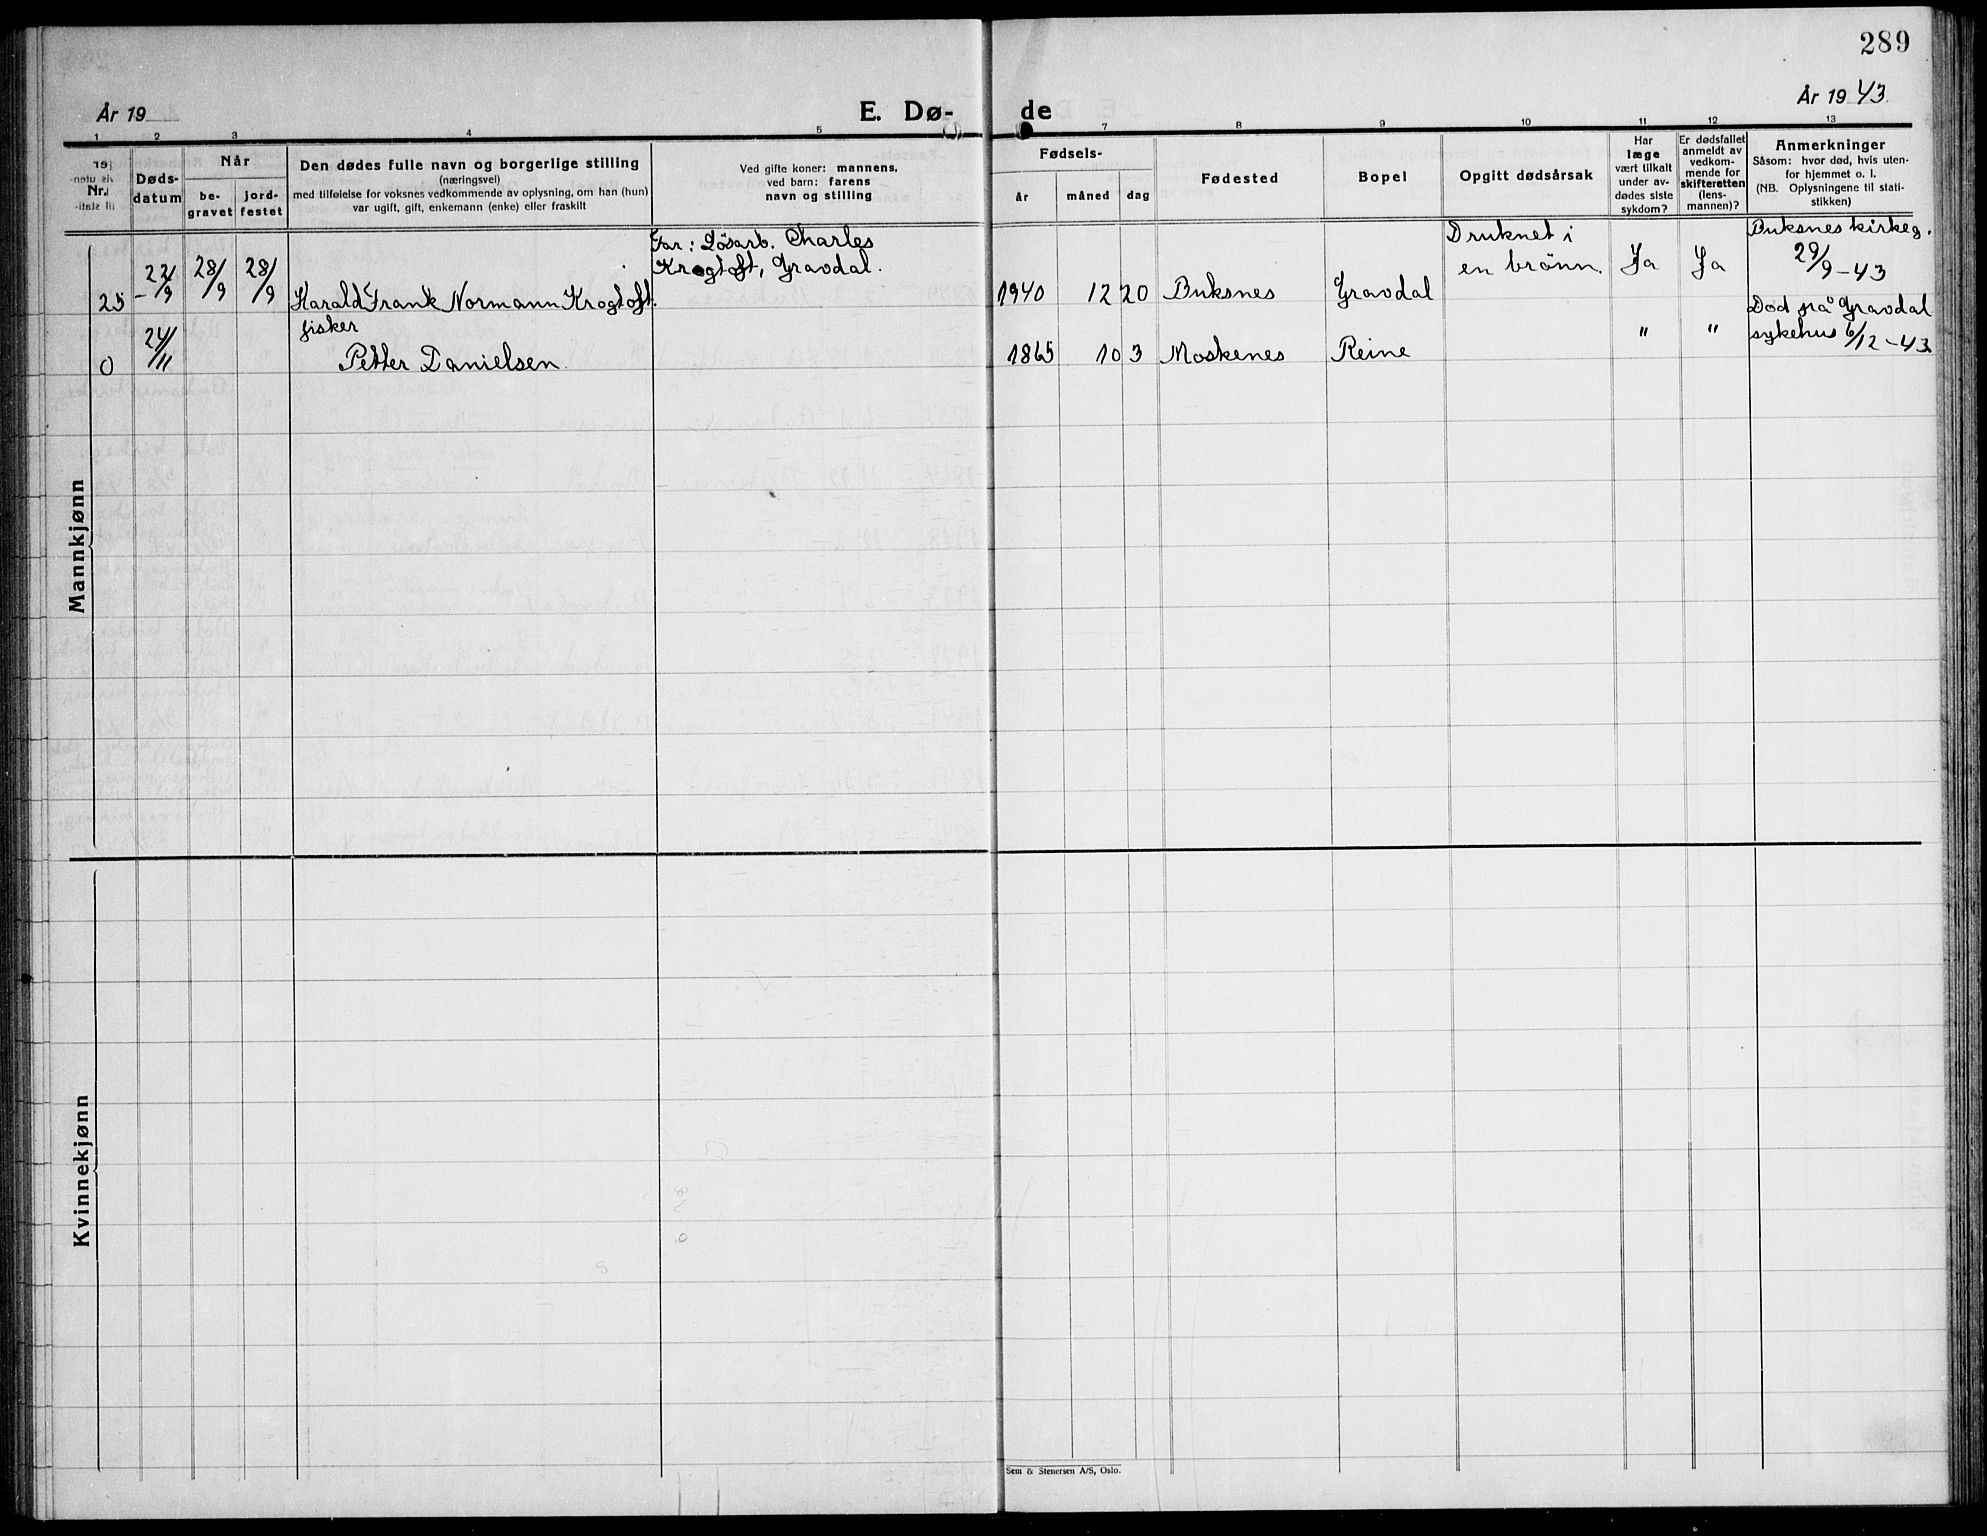 289
År 19
E. Dø-
de
År 1943
1 2 3 4 5 7 8 9 10 11 12 13
Nr.
Døds-
datum
Når
be-
gravet
jord-
festet
Den dødes fulle navn og borgerlige stilling
(næringsvei)
med tilføielse for voksnes vedkommende av oplysning, om han (hun)
var ugift, gift, enkemann (enke) eller fraskilt
Ved gifte koner: mannens,
ved barn: farens
navn og stilling
Fødsels-
år måned dag
Fødested
Bopel
Opgitt dødsårsak
Har
læge
vært tilkalt
under av-
dødes siste
sykdom?
Er dødsfallet
anmeldt av
vedkom-
mende for
skifteretten
(lens-
mannen)?
Anmerkninger
Såsom: hvor død, hvis uten-
for hjemmet o. l.
(NB. Oplysningene til stati-
stikken)
Mannkjønn
25
22/9
28/9
28/9
Harald Frank Normann Krogtoft.
Far: Løsarb. Charles
Krogtoft, Gravdal.
1940 12 20 Buksnes Gravdal
Druknet i
en brønn.
Ja Ja
Buksnes kirkeg.
29/9-43
0
24/11
fisker
Petter Danielsen.
1865 10 3 Moskenes Reine
" "
Død på Gravdal
sykehus 6/12-43
Kvinnekjønn
Sem & Stenersen A/S, Oslo.